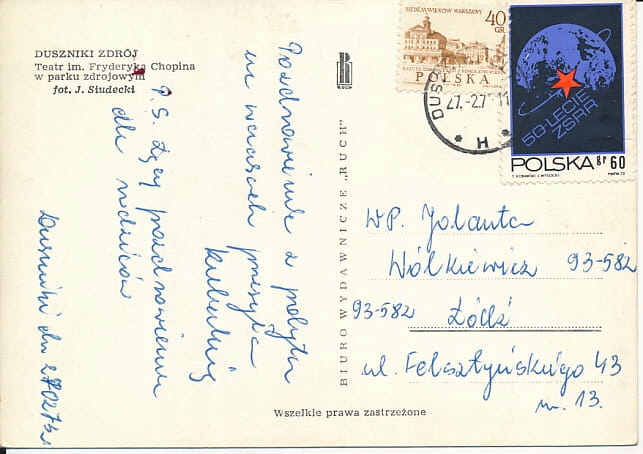 DUSZNIKI ZDRÓJ
Teatr im. Fryderyka Chopina
w parku zdrojowym
fot. J. Siudecki
Pozdrowienia z pobytu
na wczasach przesyła
P.S. Łączę pozdrowienia
dla rodziców
Duszniki dn
BIURO WYDAWNICZE „RUCH"
RUCH
SIEDEM WIEKÓW WARSZAWY
40
GR
POLSKA
DUSZ
27.-2.7
11
H
50-LECIE
ZSRR
POLSKA gr 60
WP. Jolanta
Wólkiewicz 93-582
93-582 Łódź
ul. Felsztyńskiego 43
m. 13.
Wszelkie prawa zastrzeżone